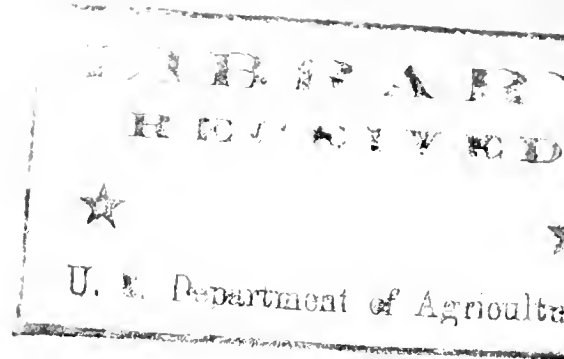 LIBRARY
RECEIVED
U. S. Department of Agricultu